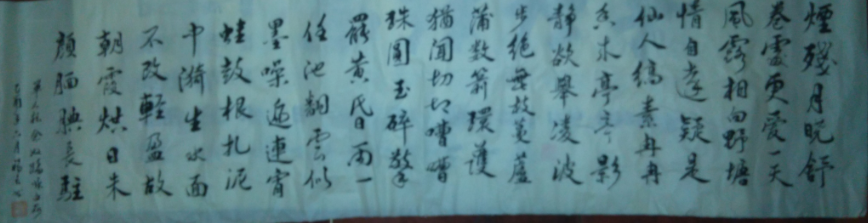 煙殘月曉舒
卷雲更愛一天
風露相向野塘
情自遠疑是
仙人縞素冉冉
香來亭亭影
靜欲舉凌波
步絕無故蒹蘆
蒲數箭環護
猶聞切切嘈嘈
珠圓玉碎擎
罷黃昏雨一
任池翻雲似
墨噪遍連宵
蛙鼓根扎泥
中漪生水面
不改輕盈故
朝霞烘日未
顏酡腆長駐